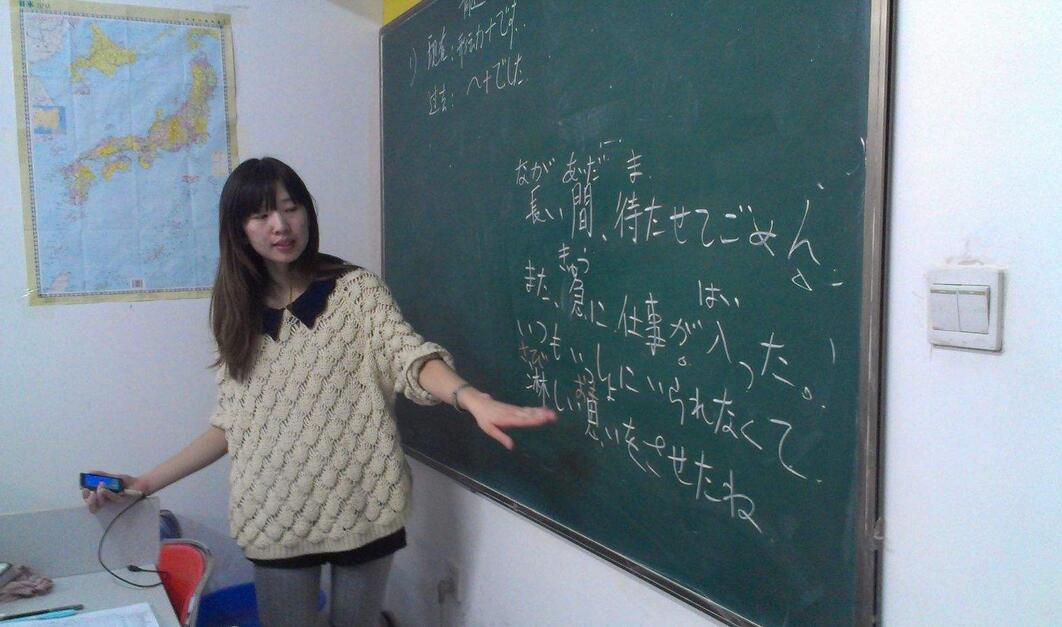 1) 现在：形动力+です.
过去： 〃+でした
なが あいだ ま
長い間、待たせてごめん。
きゅう はい
また、急に仕事が入った。
いつもいっしょにいられなくて
さび
淋しい想いをさせたね